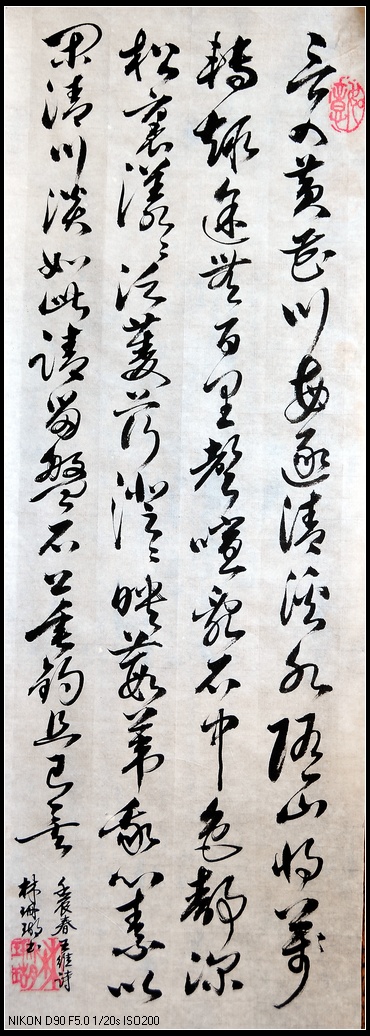 言入黃花川每逐清溪水隨山將萬
轉趣途無百里聲喧亂石中色靜深
松裏漾々泛菱荇澄々映葭葦我心素以
閑清川淡如此請留盤石上垂釣且已矣
壬辰春王維詩
林珊瑚书
NIKON D90 F5.0 1/20s ISO200